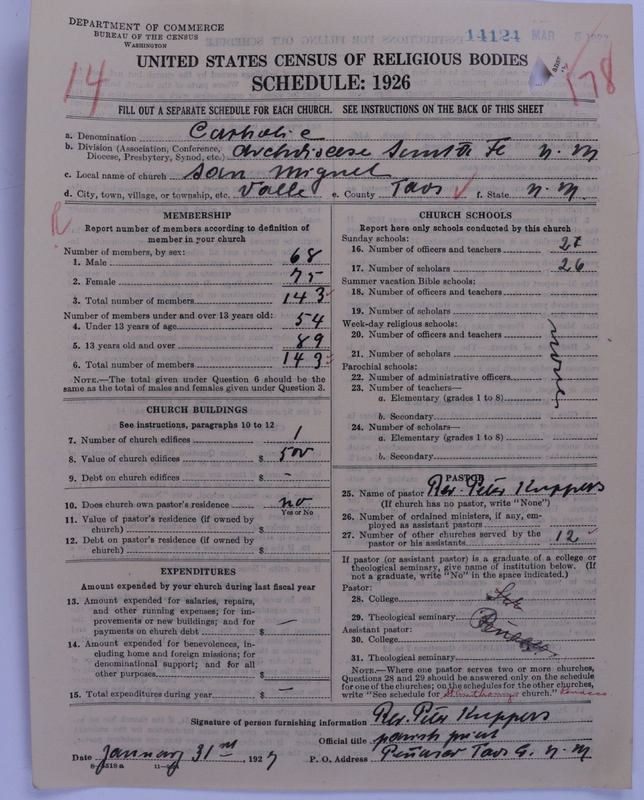 DEPARTMENT OF COMMERCE
BUREAU OF THE CENSUS
WASHINGTON
14124 MAR
UNITED STATES CENSUS OF RELIGIOUS BODIES
SCHEDULE: 1926
14
178
FILL OUT A SEPARATE SCHEDULE FOR EACH CHURCH. SEE INSTRUCTIONS ON THE BACK OF THIS SHEET
a. Denomination Catholic
b. Division (Association, Conference, Diocese, Presbytery, Synod, etc.) Archdiocese Santa Fe N. M
c. Local name of church San Miguel
d. City, town, village, or township, etc. Valle e. County Taos f. State N. M.
R
MEMBERSHIP
Report number of members according to definition of
member in your church
Number of members, by sex:
1. Male 68
2. Female 75
3. Total number of members 143
Number of members under and over 13 years old:
4. Under 13 years of age 54
5. 13 years old and over 89
6. Total number of members 143
NOTE.—The total given under Question 6 should be
the same as the total of males and females given under Question 3.
CHURCH BUILDINGS
See instructions, paragraphs 10 to 12
7. Number of church edifices 1
8. Value of church edifices $ 500
9. Debt on church edifices $ -
10. Does church own pastor's residence no
Yes or No
11. Value of pastor's residence (if owned by
church) $
12. Debt on pastor's residence (if owned by
church) $
EXPENDITURES
Amount expended by your church during last fiscal year
13. Amount expended for salaries, repairs,
and other running expenses; for im-
provements or new buildings; and for
payments on church debt $ —
14. Amount expended for benevolences, in-
cluding home and foreign missions; for
denominational support; and for all
other purposes $
15. Total expenditures during year $ —
CHURCH SCHOOLS
Report here only schools conducted by this church
Sunday schools:
16. Number of officers and teachers
17. Number of scholars 26
Summer vacation Bible schools:
18. Number of officers and teachers
19. Number of scholars
Week-day religious schools:
20. Number of officers and teachers
21. Number of scholars
Parochial schools:
22. Number of administrative officers
23. Number of teachers—
a. Elementary (grades 1 to 8)
b. Secondary
24. Number of scholars—
a. Elementary (grades 1 to 8)
b. Secondary
PASTOR
25. Name of pastor Rev. Peter Kuppers
(If church has no pastor, write "None")
26. Number of ordained ministers, if any, em-
ployed as assistant pastors
27. Number of other churches served by the
pastor or his assistants 12
If pastor (or assistant pastor) is a graduate of a college or
theological seminary, give name of institution below. (If
not a graduate, write "No" in the space indicated.)
Pastor:
28. College
29. Theological seminary
Assistant pastor:
30. College
31. Theological seminary
NOTE.—Where one pastor serves two or more churches,
Questions 28 and 29 should be answered only on the schedule
for one of the churches; on the schedules for the other churches,
write "See schedule for St Anthonys church."
Signature of person furnishing information Rev. Peter Kuppers
Official title parish priest
Date January 31st, 1927 P. O. Address Peñasco Taos Co. N. M
8-5518a